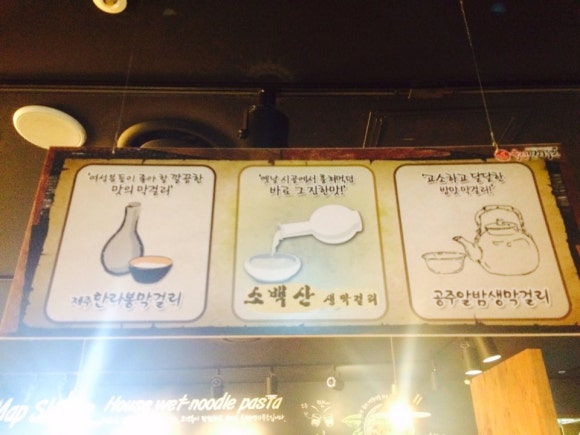 '여성분들이 좋아 할 깔끔한
맛의 막걸리'
제주한라봉막걸리
'옛날 시골에서 훔쳐먹던
바로 그 진한맛!'
소백산 생막걸리
'고소하고 달달한
밤맛 막걸리!'
공주알밤생막걸리
House wet noodle pasta